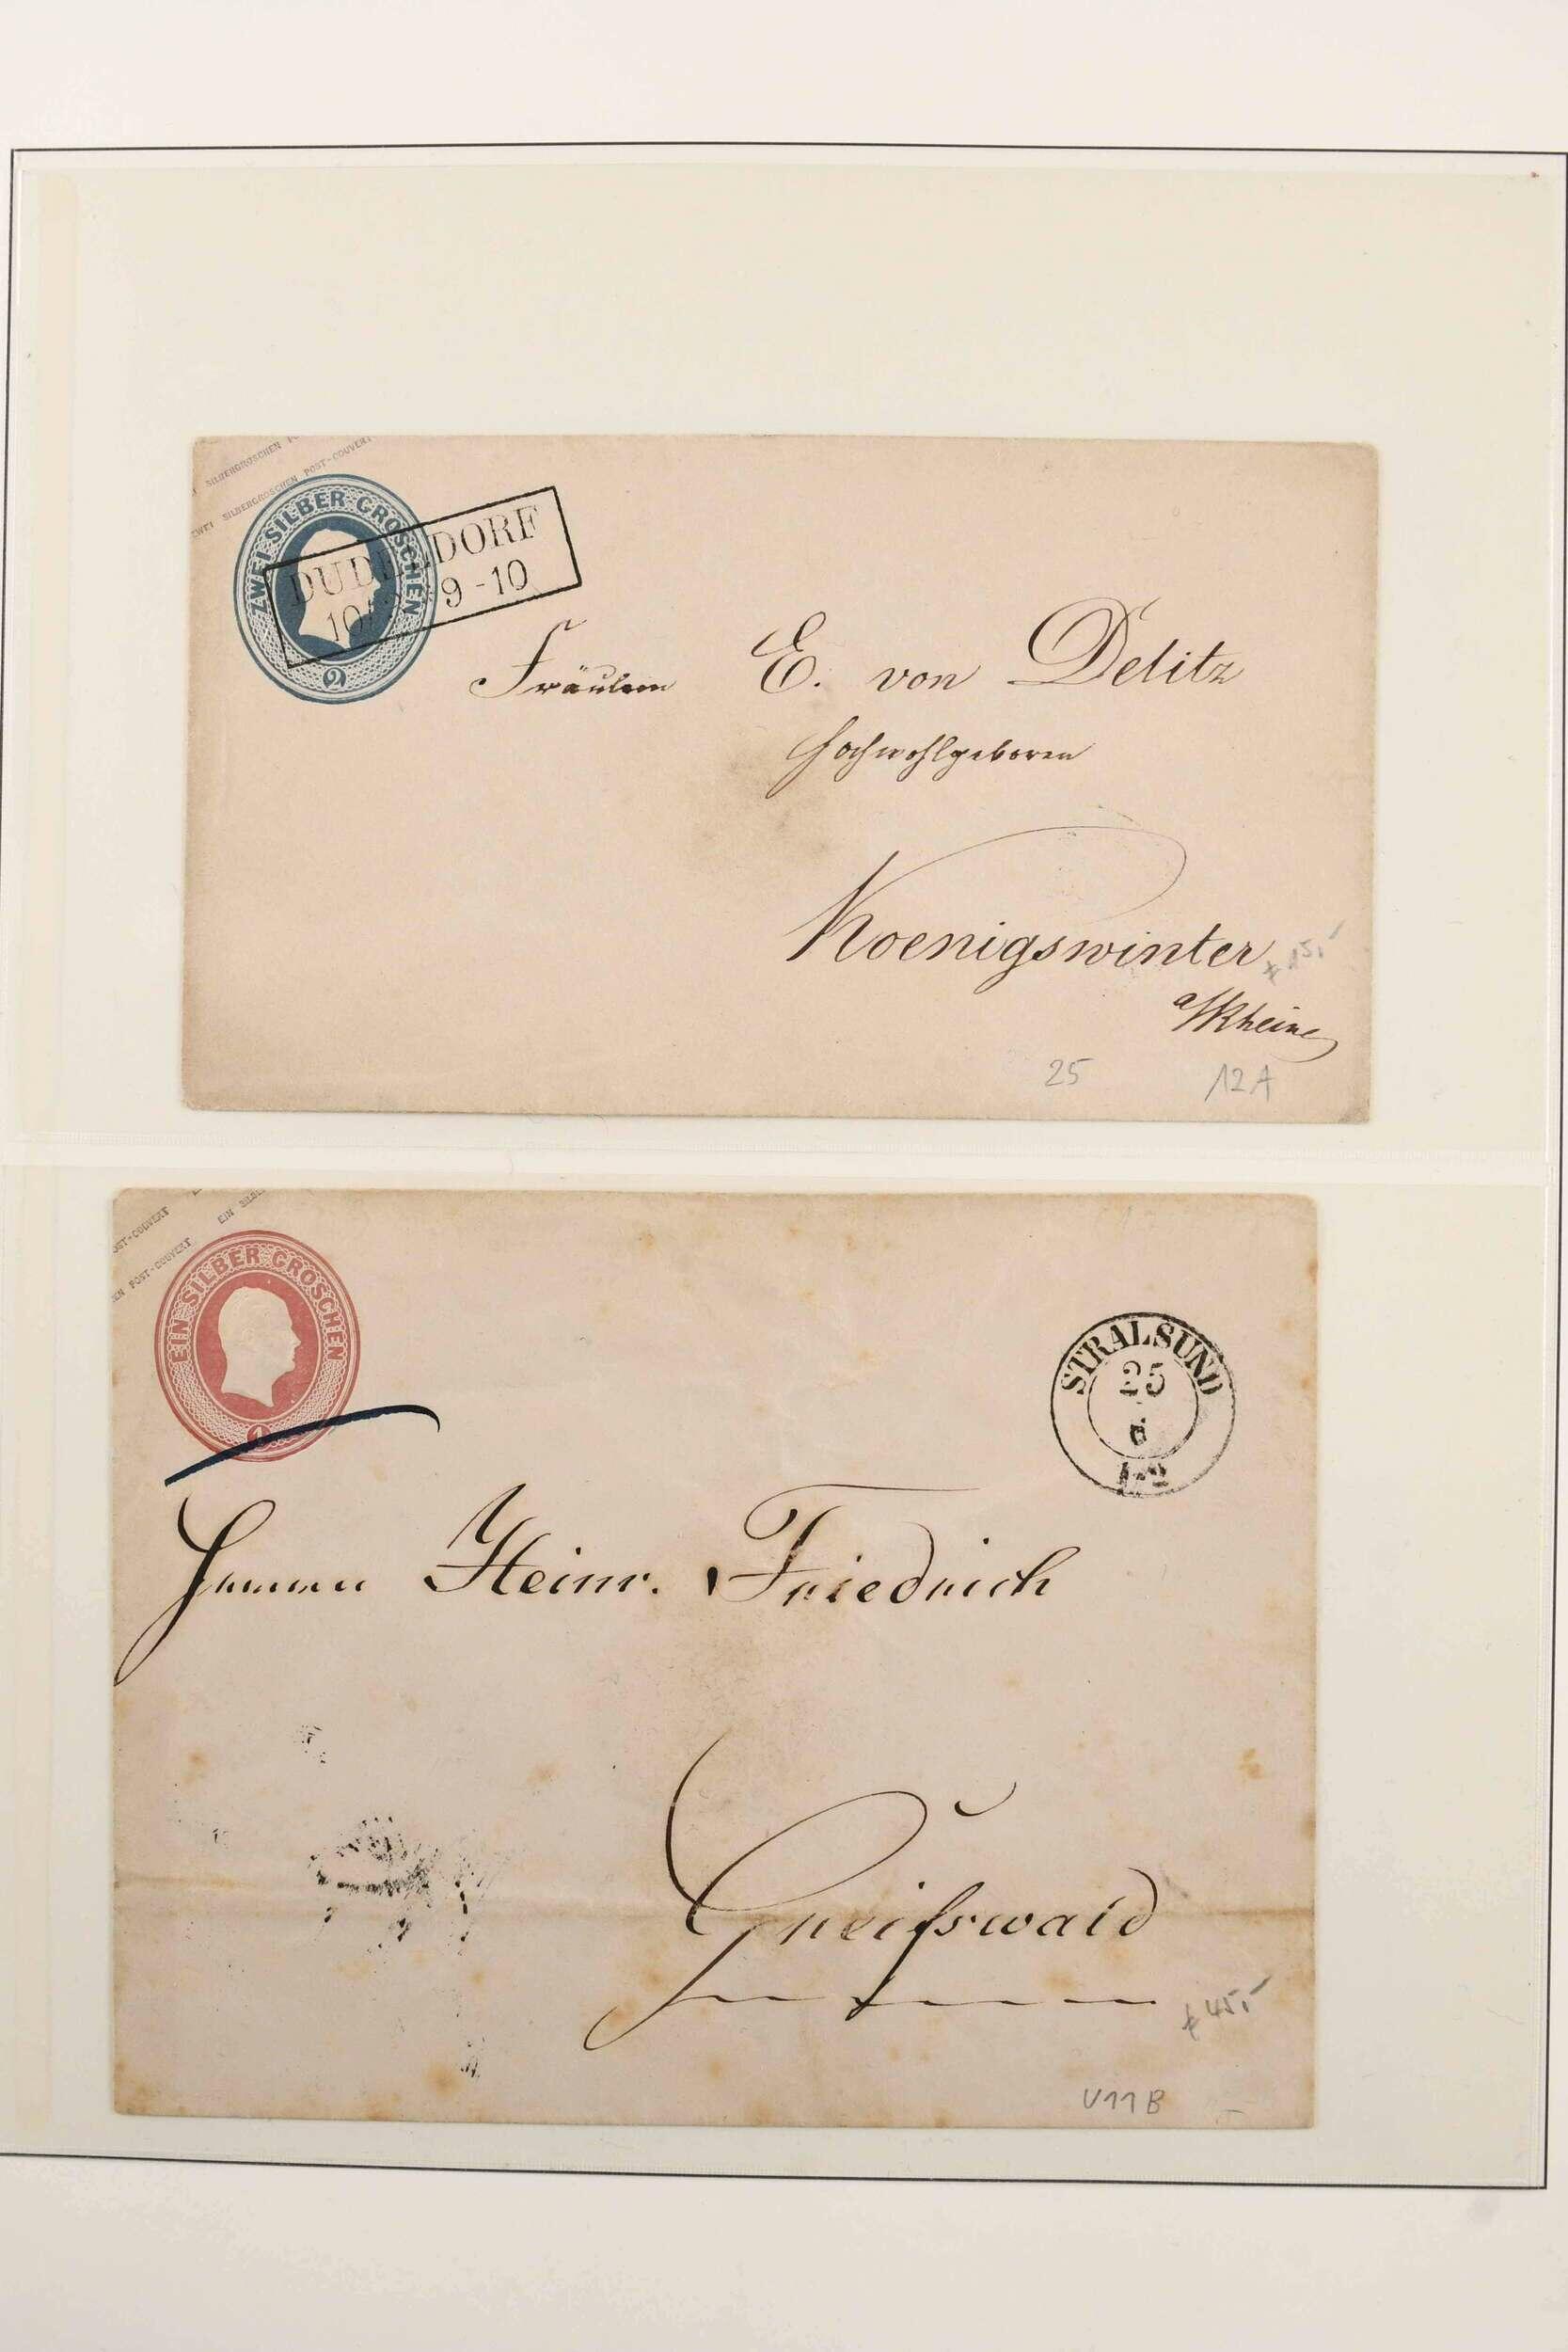 SILBERGROSCHEN
ZWEI SILBERGROSCHEN POST-COUVERT
ZWEI SILBER GROSCHEN
2
DUDELDORF
9-10
Fräulein E. von Delitz
Hochwohlgeboren
Koenigswinter
a/Rheine
25 12A
OST-COUVERT EIN SILBE
EN POST-COUVERT
EIN SILBER GROSCHEN
1
STRALSUND
25
6
1-2
Herrn Heinr. Friedrich
Greifswald
45,-
U11B